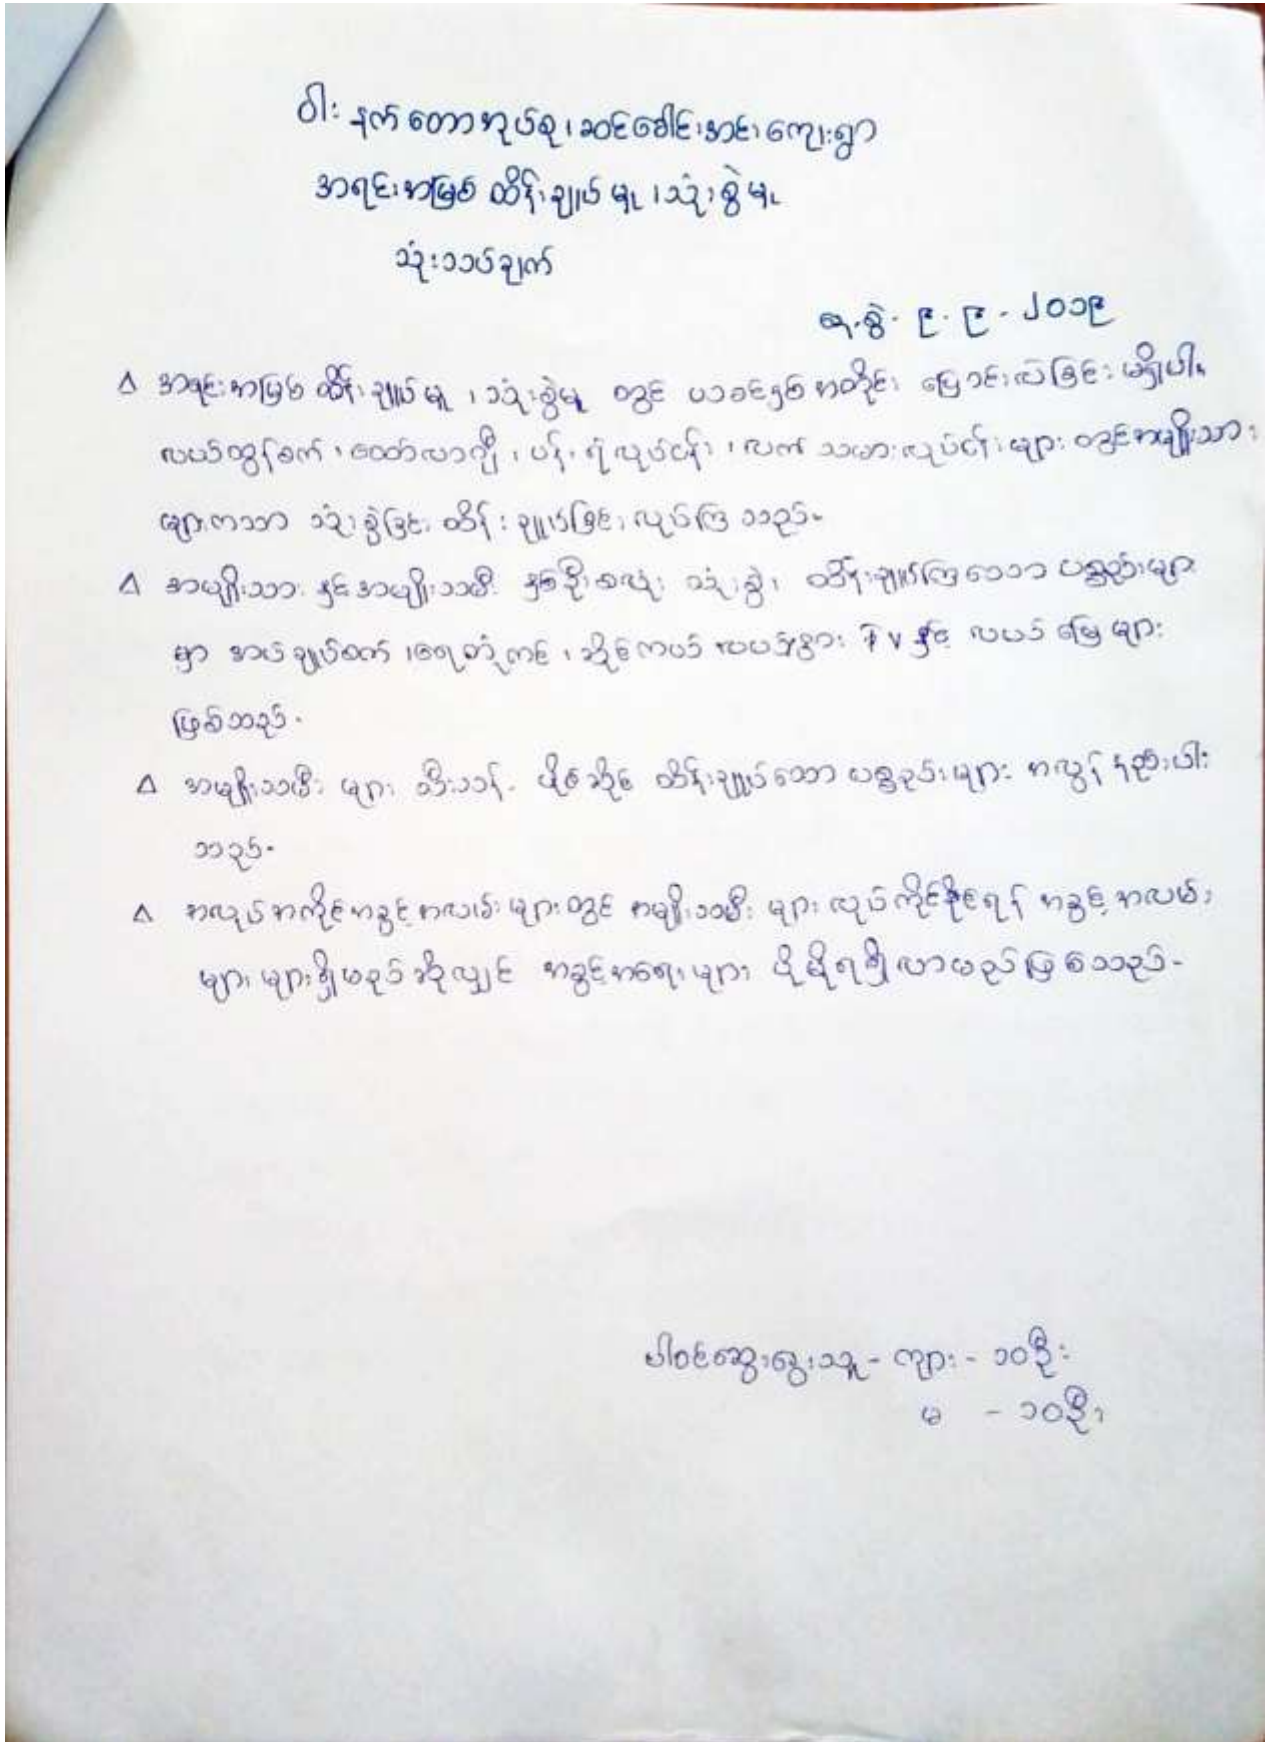 ဝါးနက်တောအုပ်စု၊ ဆင်ခေါင်းအင်းကျေးရွာ
အရင်းအမြစ် ထိန်းချုပ်မှု၊ သုံးစွဲမှု
သုံးသပ်ချက်
ရ.စွဲ. ၉. ၉. ၂၀၁၉
△ အရင်းအမြစ် ထိန်းချုပ်မှု၊ သုံးစွဲမှု တွင် ယခင်နှစ်အတိုင်း ပြောင်းလဲခြင်း မရှိပါ။
လယ်ထွန်စက်၊ ထော်လာဂျီ၊ ပန်းရံလုပ်ငန်း၊ လက်သမားလုပ်ငန်းများ တွင် အမျိုးသား
များကသာ သုံးစွဲခြင်း ထိန်းချုပ်ခြင်း လုပ်ကြသည်-
△ အမျိုးသား နှင့် အမျိုးသမီး နှစ်ဦးစလုံး သုံးစွဲ၊ ထိန်းချုပ်ကြသော ပစ္စည်းများ
မှာ အပ်ချုပ်စက်၊ ရေတုံကင်၊ ဆိုင်ကယ် TV နှင့် လယ်မြေများ
ဖြစ်သည်-
△ အမျိုးသမီး များ သီးသန့်- ပိုင်ဆိုင် ထိန်းချုပ်သော ပစ္စည်းများ အလွန်နည်းပါး
သည်-
△ အလုပ်အကိုင်အခွင့်အလမ်းများတွင် အမျိုးသမီး များ လုပ်ကိုင်နိုင်ရန် အခွင့်အလမ်း
များ များရှိမည်ဆိုလျှင် အခွင့်အရေးများ ပိုမိုရရှိလာမည်ဖြစ်သည်-
ပါဝင်ဆွေးနွေးသူ - ကျား - ၁၀ဦး
မ - ၁၀ဦး